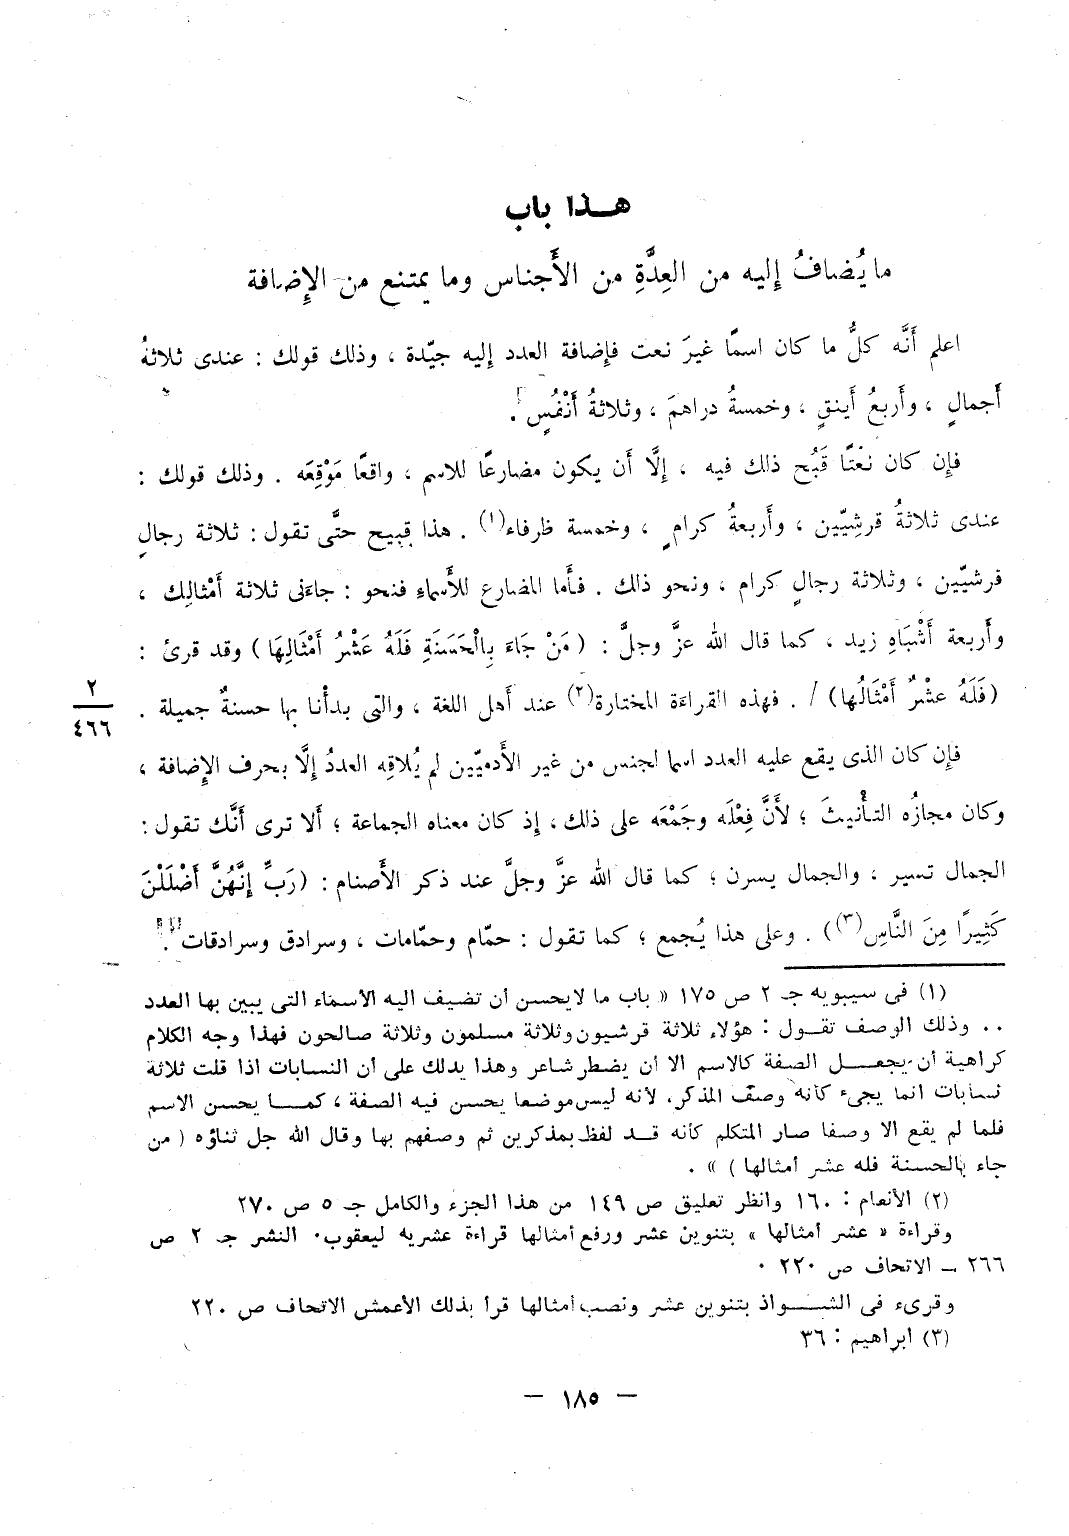 هــذا باب
ما يُضافُ إليه من العِدَّةِ من الأَجناس وما يمتنع من الإِضافة
اعلم أَنَّه كلُّ ما كان اسمًا غيرَ نعت فإِضافة العدد إليه جيّدة ، وذلك قولك : عندى ثلاثةُ
أَجمالٍ ، وأَربعُ أَينقٍ ، وخمسةُ دراهمَ ، وثلاثةُ أَنْفُسٍ .
فإِن كان نعْتًا قَبُح ذلك فيه ، إلَّا أَن يكون مضارعًا للاسم ، واقعًا مَوْقِعَه . وذلك قولك :
عندى ثلاثةُ قرشِيّين ، وأَربعةُ كرامٍ ، وخمسة ظرفاء(١) . هذا قبيح حتَّى تقول : ثلاثة رجالٍ
قرشيّين ، وثلاثة رجالٍ كرام ، ونحو ذلك . فأَما المضارع للأَسماءِ فنحو : جاءَنى ثلاثة أَمْثالِك ،
وأَربعة أَشْبَاهِ زيد ، كما قال الله عزَّ وجلَّ : ( مَنْ جَاءَ بِالْحَسَنَةِ فَلَهُ عَشْرُ أَمْثَالِهَا ) وقد قرئ :
(فَلَهُ عشْرٌ أَمْثَالُها) / . فهذه القراءَة المختارة(٢) عند أَهل اللغة ، والتى بدأْنا بها حسنةٌ جميلة .
٢
٤٦٦
فإِن كان الذى يقع عليه العدد اسما لجنس من غير الأَدميّين لم يُلاقِه العددُ إلَّا بحرف الإِضافة ،
وكان مجازُه التأْنيثَ ؛ لأَنَّ فِعْلَه وجَمْعَه على ذلك ، إذ كان معناه الجماعة ؛ أَلا ترى أَنَّك تقول :
الجمال تسير ، والجمال يسرن ؛ كما قال الله عزَّ وجلَّ عند ذكر الأَصنام : (رَبِّ إِنَّهُنَّ أَضْلَلْنَ
كَثِيرًا مِنَ النَّاسِ(٣)) . وعلى هذا يُجمع ؛ كما تقول : حمّام وحمّامات ، وسرادق وسرادقات .
(١) فى سيبويه جـ ٢ ص ١٧٥ « باب ما لايحسن أن تضيف اليه الأسماء التى يبين بها العدد
.. وذلك الوصف تقــول : هؤلاء ثلاثة قرشيون وثلاثة مسلمون وثلاثة صالحون فهذا وجه الكلام
كراهية أن يجعــــل الصفة كالاسم الا أن يضطر شاعر وهذا يدلك على أن النسابات اذا قلت ثلاثة
نسابات انما يجىء كأنه وصف المذكر، لأنه ليس موضعا يحسن فيه الصفة ، كمــا يحسن الاسم
فلما لم يقع الا وصفا صار المتكلم كأنه قــد لفظ بمذكرين ثم وصفهم بها وقال الله جل ثناؤه ( من
جاء بالحسنة فله عشر أمثالها ) » .
(٢) الأنعام : ١٦٠ وانظر تعليق ص ١٤٩ من هذا الجزء والكامل جـ ٥ ص ٢٧٠
وقراءة « عشر أمثالها » بتنوين عشر ورفع أمثالها قراءة عشريه ليعقوب. النشر جـ ٢ ص
٢٦٦ ــ الاتحاف ص ٢٢٠ .
وقرىء فى الشــــواذ بتنوين عشر ونصب أمثالها قرأ بذلك الأعمش الاتحاف ص ٢٢٠
(٣) ابراهيم : ٣٦
— ١٨٥ —